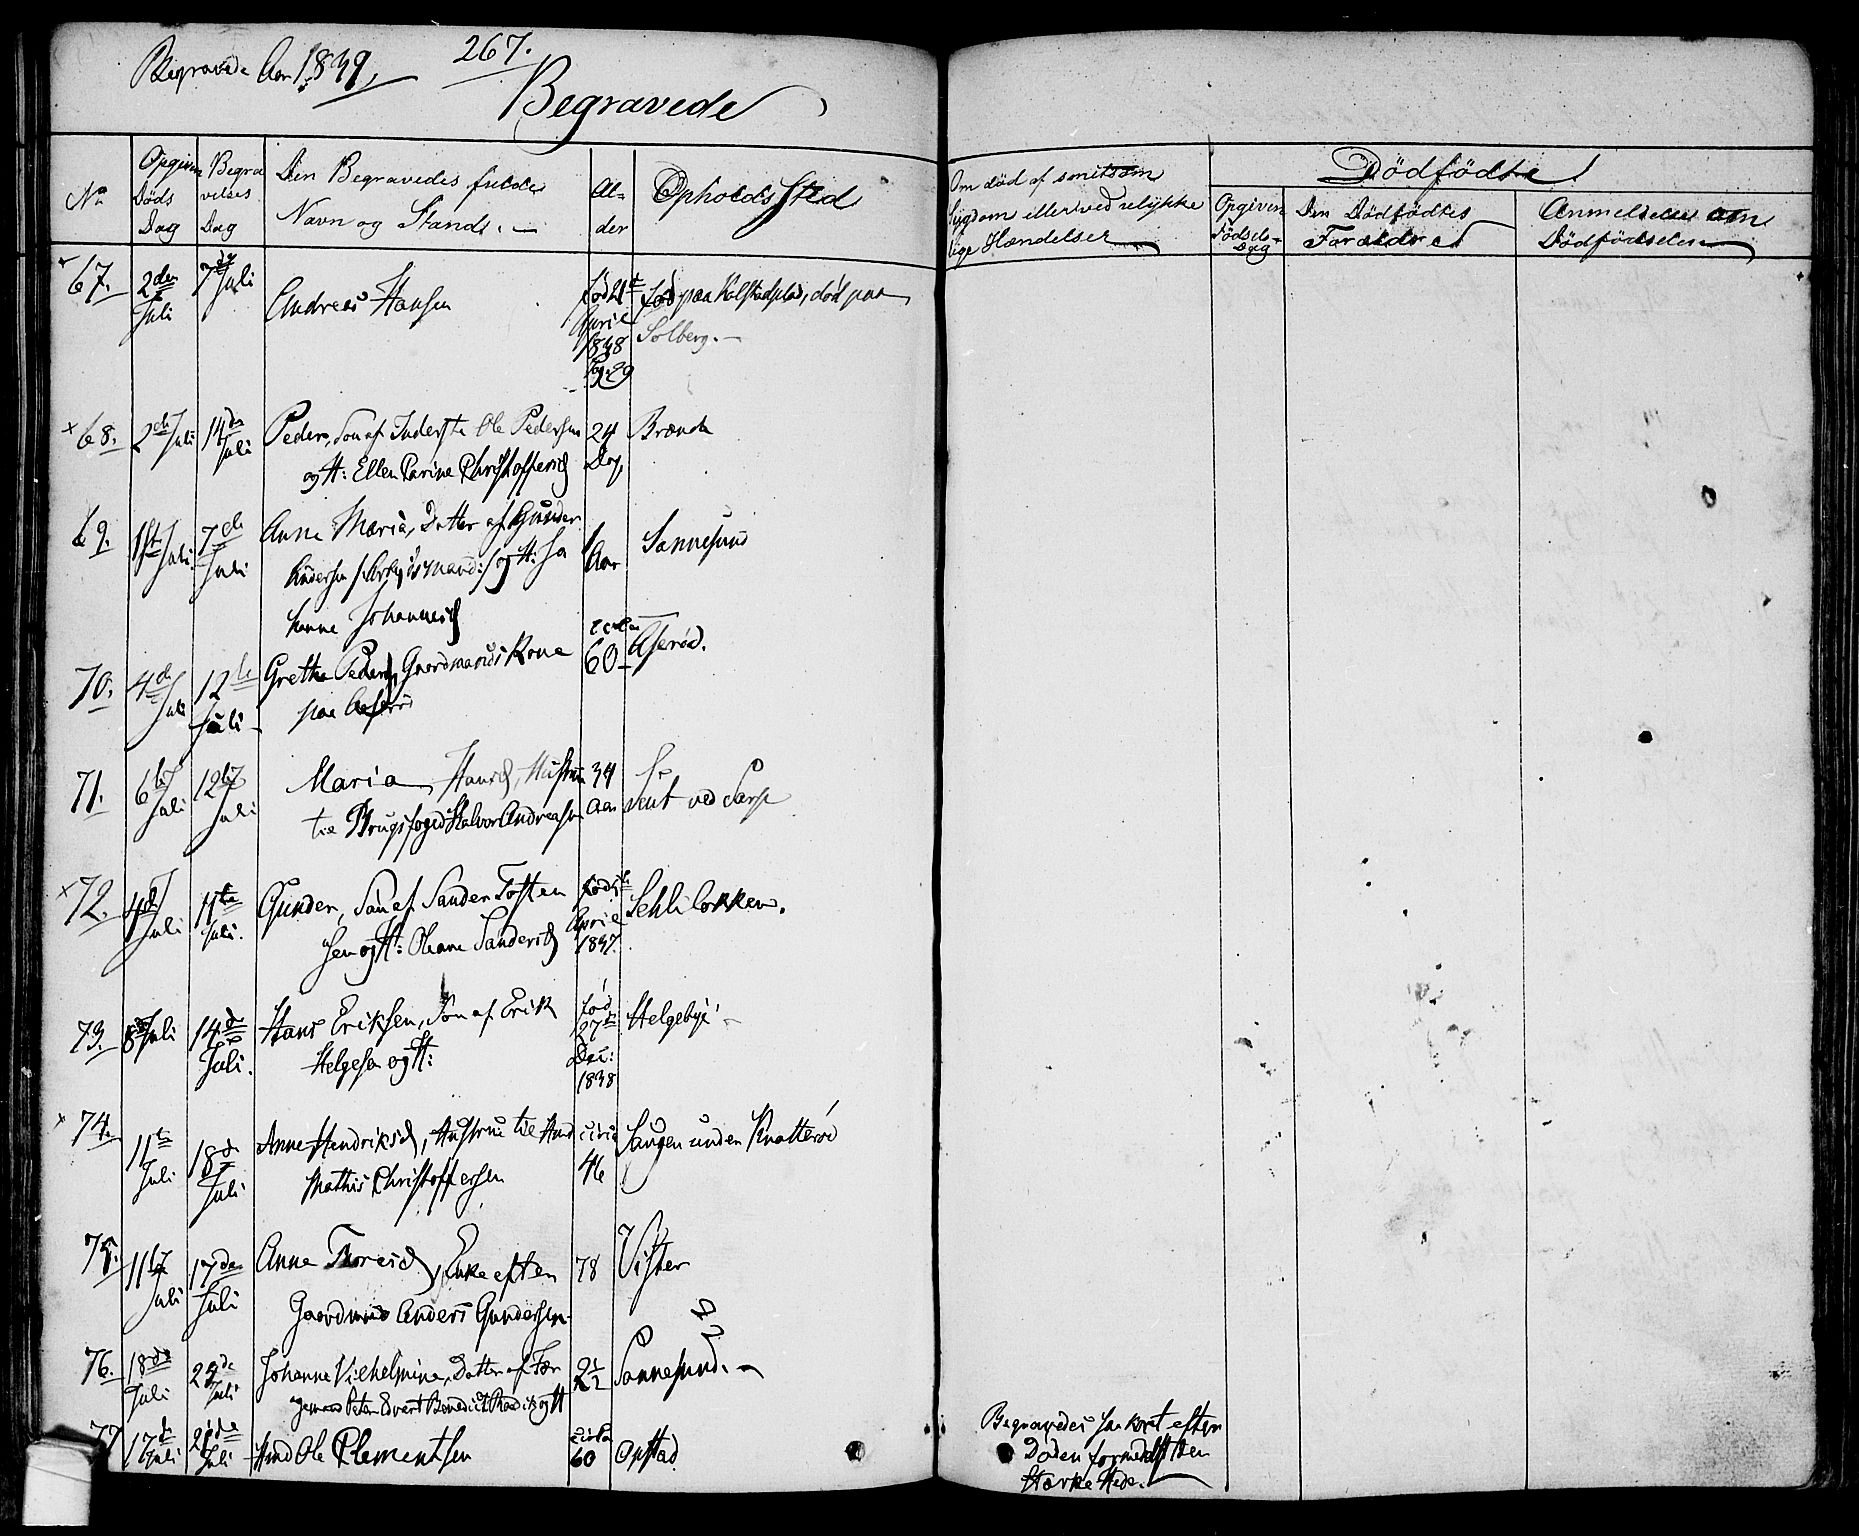 Begravede Aar 1839,
267.
Begravede
No
Opgiven Døds Dag
Begravelses Dag
Den Begravedes fulde Navn og Stand.
Alder
Opholds Sted
Om død af smitsom
Sygdom eller ved ulykke
lige Hændelser
Dödfödte
Opgiven Födsels Dag
Den Dödfödtes Forældre
Anmeldelse om Dödfödselen
67. 2den Juli 7de Juli Andreas Hansen
født April 1838 Pag: 29
fød paa Kolstadplad, død paa
Solberg.
68. 2de Juli 14de Juli Peder, Søn af Inderste Ole Pedersen 24 Dag,
og H: Ellen Karine Christoffersd
69. 1ste Juli 7de Juli Anne Maria, Datter af Gunder
Andersen /:Arbejdsmand:/ og H: Jo
hanne Johannesd
1 Aar Sannesund
70. 4de Juli 12te Juli Grethe Pedersd, Gaardmands Kone
paa
60 Aserød.
71. 6te Juli 12te Juli Maria Hansd, Hustrue 34 Aar
til Brugsfoged Halvor Andreasen
ved Sarp
72. 4de Juli 11te Juli Gunder, Søn af Sander Tosten
sen og H: Oleane Sandersd
født April 1837.
Sehliløkken.
73. 8de Juli 14de Juli Hans Eriksen, Søn af Erik
Helgesen og H:
fød 27de Dec: 1838
Helgebye
74. 11te Juli 18de Juli Anne Hendriksd, Hustrue til Hmd
Mathis Christoffersen
circa 46
Haugen under Knatterød
75. 11te Juli 17den Juli Anne Thoresd, Enke efter 78 Vister
Gaardmand Anders Gundersen
76. 18de Juli 23de Juli Johanne Vilhelmine, Datter af Fær
gemand Peter Edvart Benedict og H
2½ Sannesund.
77 17de Juli 21de Juli Hmd Ole Clementsen cirka 60 Opstad
Begravedes saa kort efter
Døden formedelst den
stærke Hede.